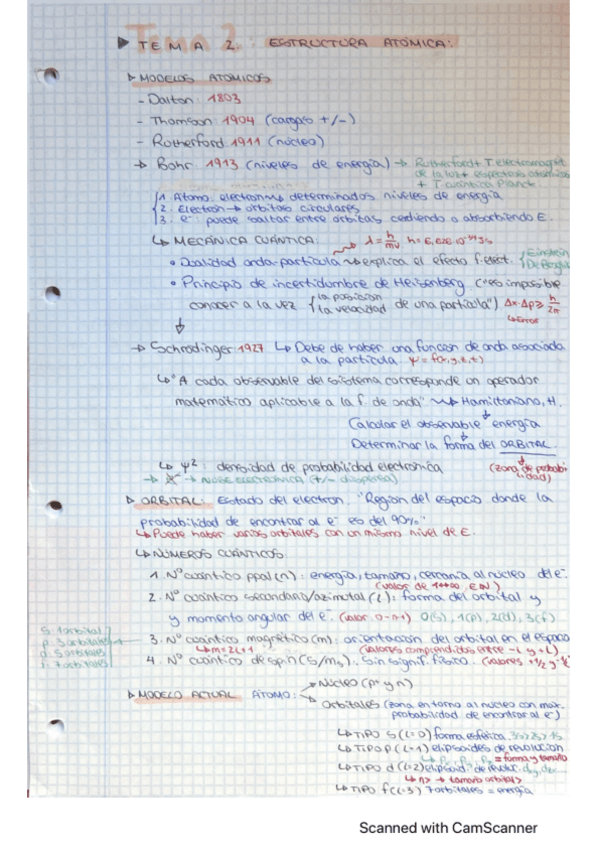 Tema 2
▶ TEMA 2: ESTRUCTURA ATÓMICA:
▷ MODELOS ATÓMICOS
- Dalton: 1803
- Thomson: 1904 (cargas +/-)
- Rutherford 1911 (núcleo)
→ Bohr: 1913 (niveles de energía) → Rutherford + T electromagnét
de la luz + espectros atómicos
+ T cuántica Planck
1. Átomo: electrón ↝ determinados niveles de energía
2. Electrón → órbitas circulares
3. e⁻ puede saltar entre órbitas cediendo o absorbiendo E.
↳ MECÁNICA CUÁNTICA: λ = h/mv h = 6,626·10⁻³⁴ Js
• Dualidad onda-partícula ↝ explica el efecto f.elect. {Einstein
De Broglie
• Principio de incertidumbre de Heisenberg ("es imposible
conocer a la vez {la posición / la velocidad de una partícula") Δx·Δp ≥ h/2π
↳ Error
→ Schrödinger 1927 ↳ Debe de haber una función de onda asociada
a la partícula. Ψ = f(x,y,z,t)
↳ "A cada observable del sistema corresponde un operador
matemático aplicable a la f. de onda" ↝ Hamiltoniano, H.
Calcular el observable energía
Determinar la forma del ORBITAL.
↳ Ψ²: densidad de probabilidad electrónica (zona de probabi
lidad)
→ NUBE ELECTRÓNICA (+/- dispersa)
▷ ORBITAL: Estado del electrón. "Región del espacio donde la
probabilidad de encontrar al e⁻ es del 90%"
↳ Puede haber varios orbitales con un mismo nivel de E.
↳ NÚMEROS CUÁNTICOS
1. Nº cuántico ppal (n): energía, tamaño, cercanía al núcleo del e⁻.
(valor de 1 → ∞, ∈ N)
2. Nº cuántico secundario/azimutal (l): forma del orbital y
y momento angular del e⁻. (valor 0-n-1) 0(s), 1(p), 2(d), 3(f)
s: 1 orbital
p: 3 orbitales
d: 5 orbitales
f: 7 orbitales
3. Nº cuántico magnético (m): orientación del orbital en el espacio
↳ m = 2l+1 (valores comprendidos entre -l y +l)
4. Nº cuántico de spin (s/mₛ). Sin signif. físico. (valores +1/2 y -1/2)
▷ MODELO ACTUAL ÁTOMO: Núcleo (p⁺ y n)
Orbitales (zona entorno al núcleo con máx.
probabilidad de encontrar al e⁻)
↳ TIPO s (l=0) forma esférica, 3s>2s>1s
↳ TIPO p (l=1) elipsoides de revolución
↳ Px, Py, Pz = forma y tamaño
↳ TIPO d (l=2) elipsoid. de revoluc.
↳ n> → tamaño orbital>
↳ TIPO f (l=3) 7 orbitales = energía
Scanned with CamScanner